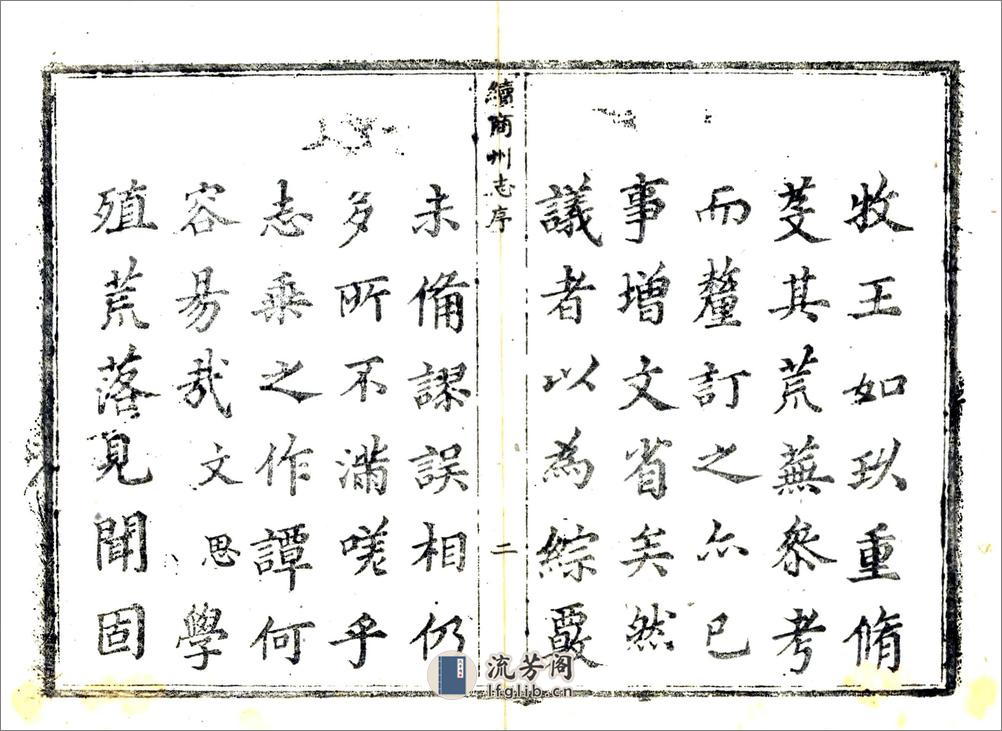 牧王如玖重脩
芟其荒蕪叅考
而釐訂之亦已
事增文省矣然
議者以為綜覈
續商州志序
二
未備謬誤相仍
多所不滿嗟乎
志乗之作譚何
容易哉文思學
殖荒落見聞固
流芳阁
lfglib.cn